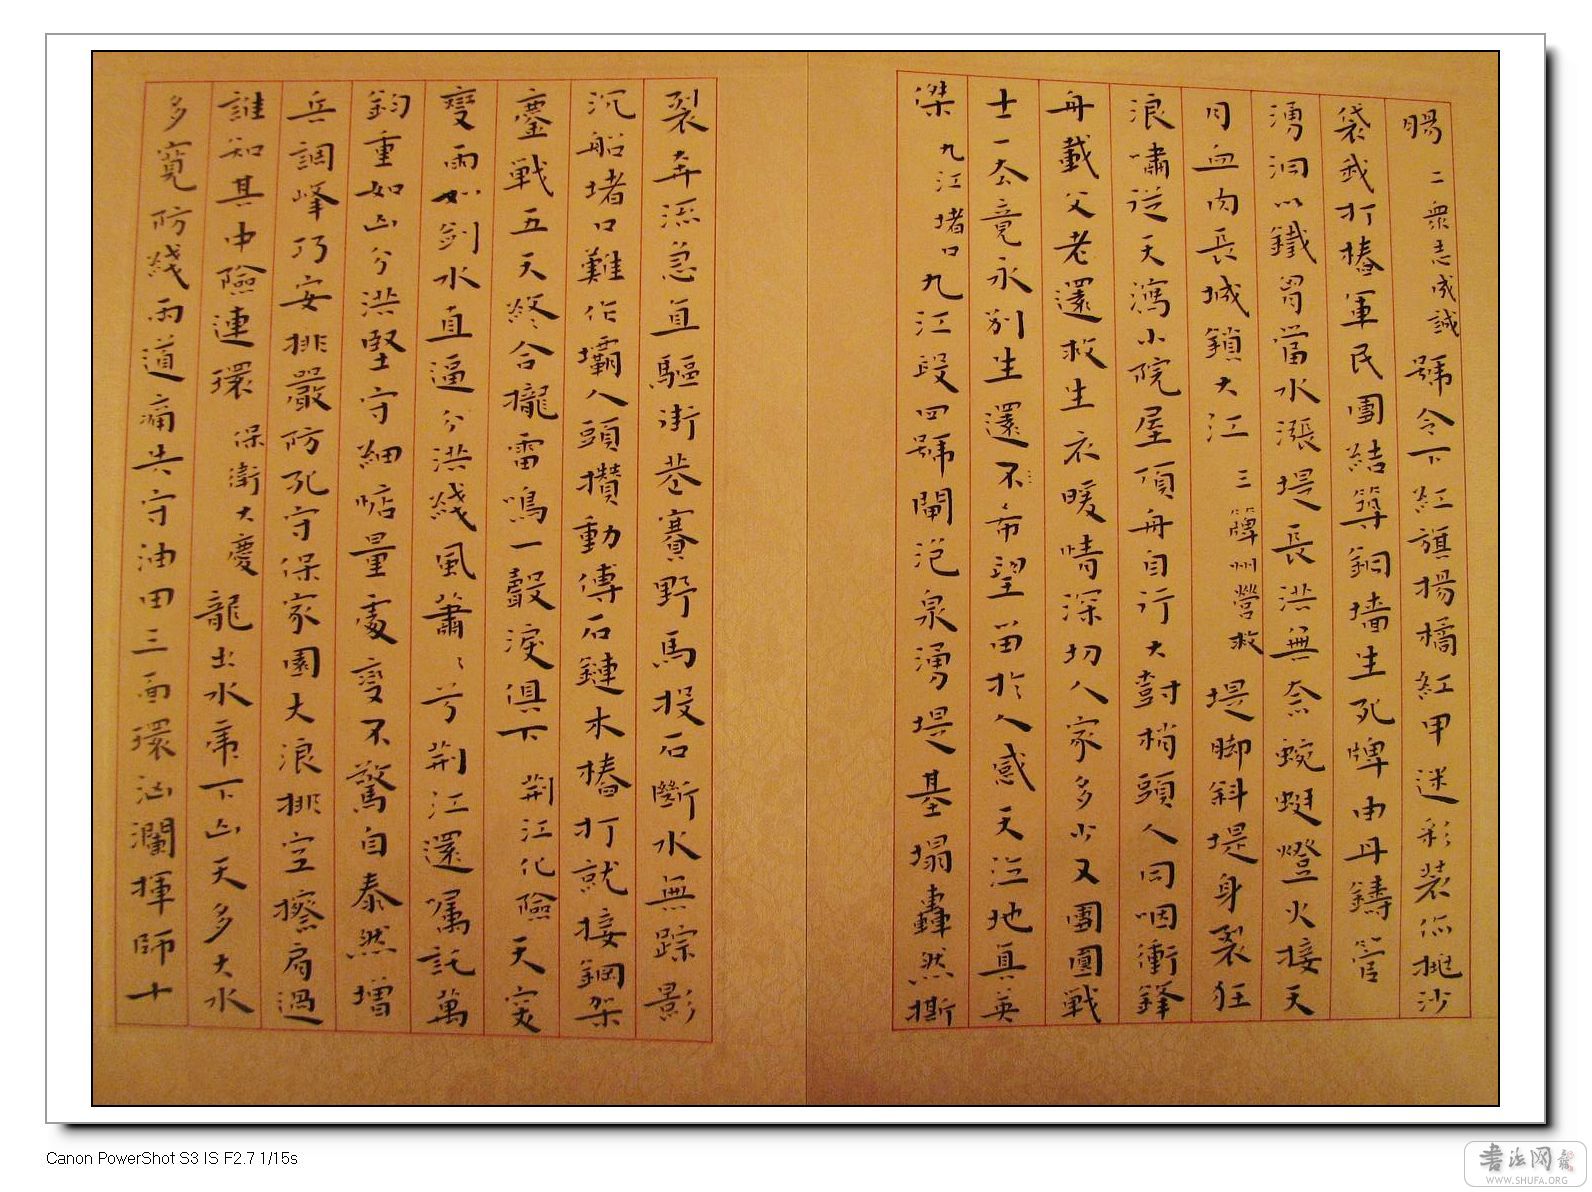 腸 二衆志成誠 號令下紅旗揚橘紅甲迷彩裝你挑沙
袋我打樁軍民團結築銅墻生死牌由丹鑄管
湧洞以鐵胃當水漲堤長洪無奈蜿蜒燈火接天
月血肉長城鎖大江 三簰州營救 堤脚斜堤身裂狂
浪嘯逆天瀉小院屋頂舟自行大樹梢頭人同咽衝鋒
舟載父老還救生衣暖情深切人家多少又團圓戰
士一去竟永別生還不希望留於人感天泣地真英
傑 九江堵口 九江段四號閘泡泉湧堤基塌轟然撕
裂奔流急直驅街巷賽野馬投石斷水無踪影
沉船堵口難作壩人頭攢動傳石鏈木樁打就接鋼架
鏖戰五天終合攏雷鳴一聲淚俱下 荆江化險 天突
變雨如劍水直逼分洪綫風蕭々兮荆江還囑託萬
鈞重如山分洪堅守細惦量處變不驚自泰然增
兵調峰巧安排嚴防死守保家園大浪排空擦肩過
誰知其中險連環 保衛大慶 龍出水虎下山天多大水
多寬防綫兩道痛失守油田三面環汹瀾揮師十
Canon PowerShot S3 IS F2.7 1/15s
書法网
WWW.SHUFA.ORG